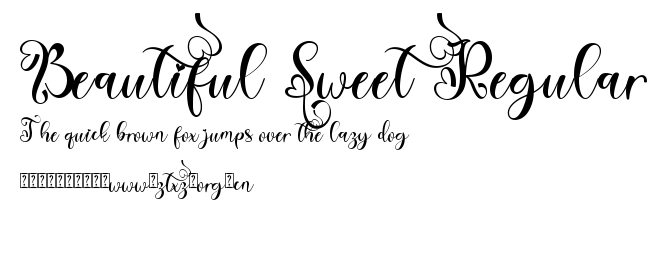 Beautiful Sweet Regular
The quick brown fox jumps over the lazy dog
www ztxz org en